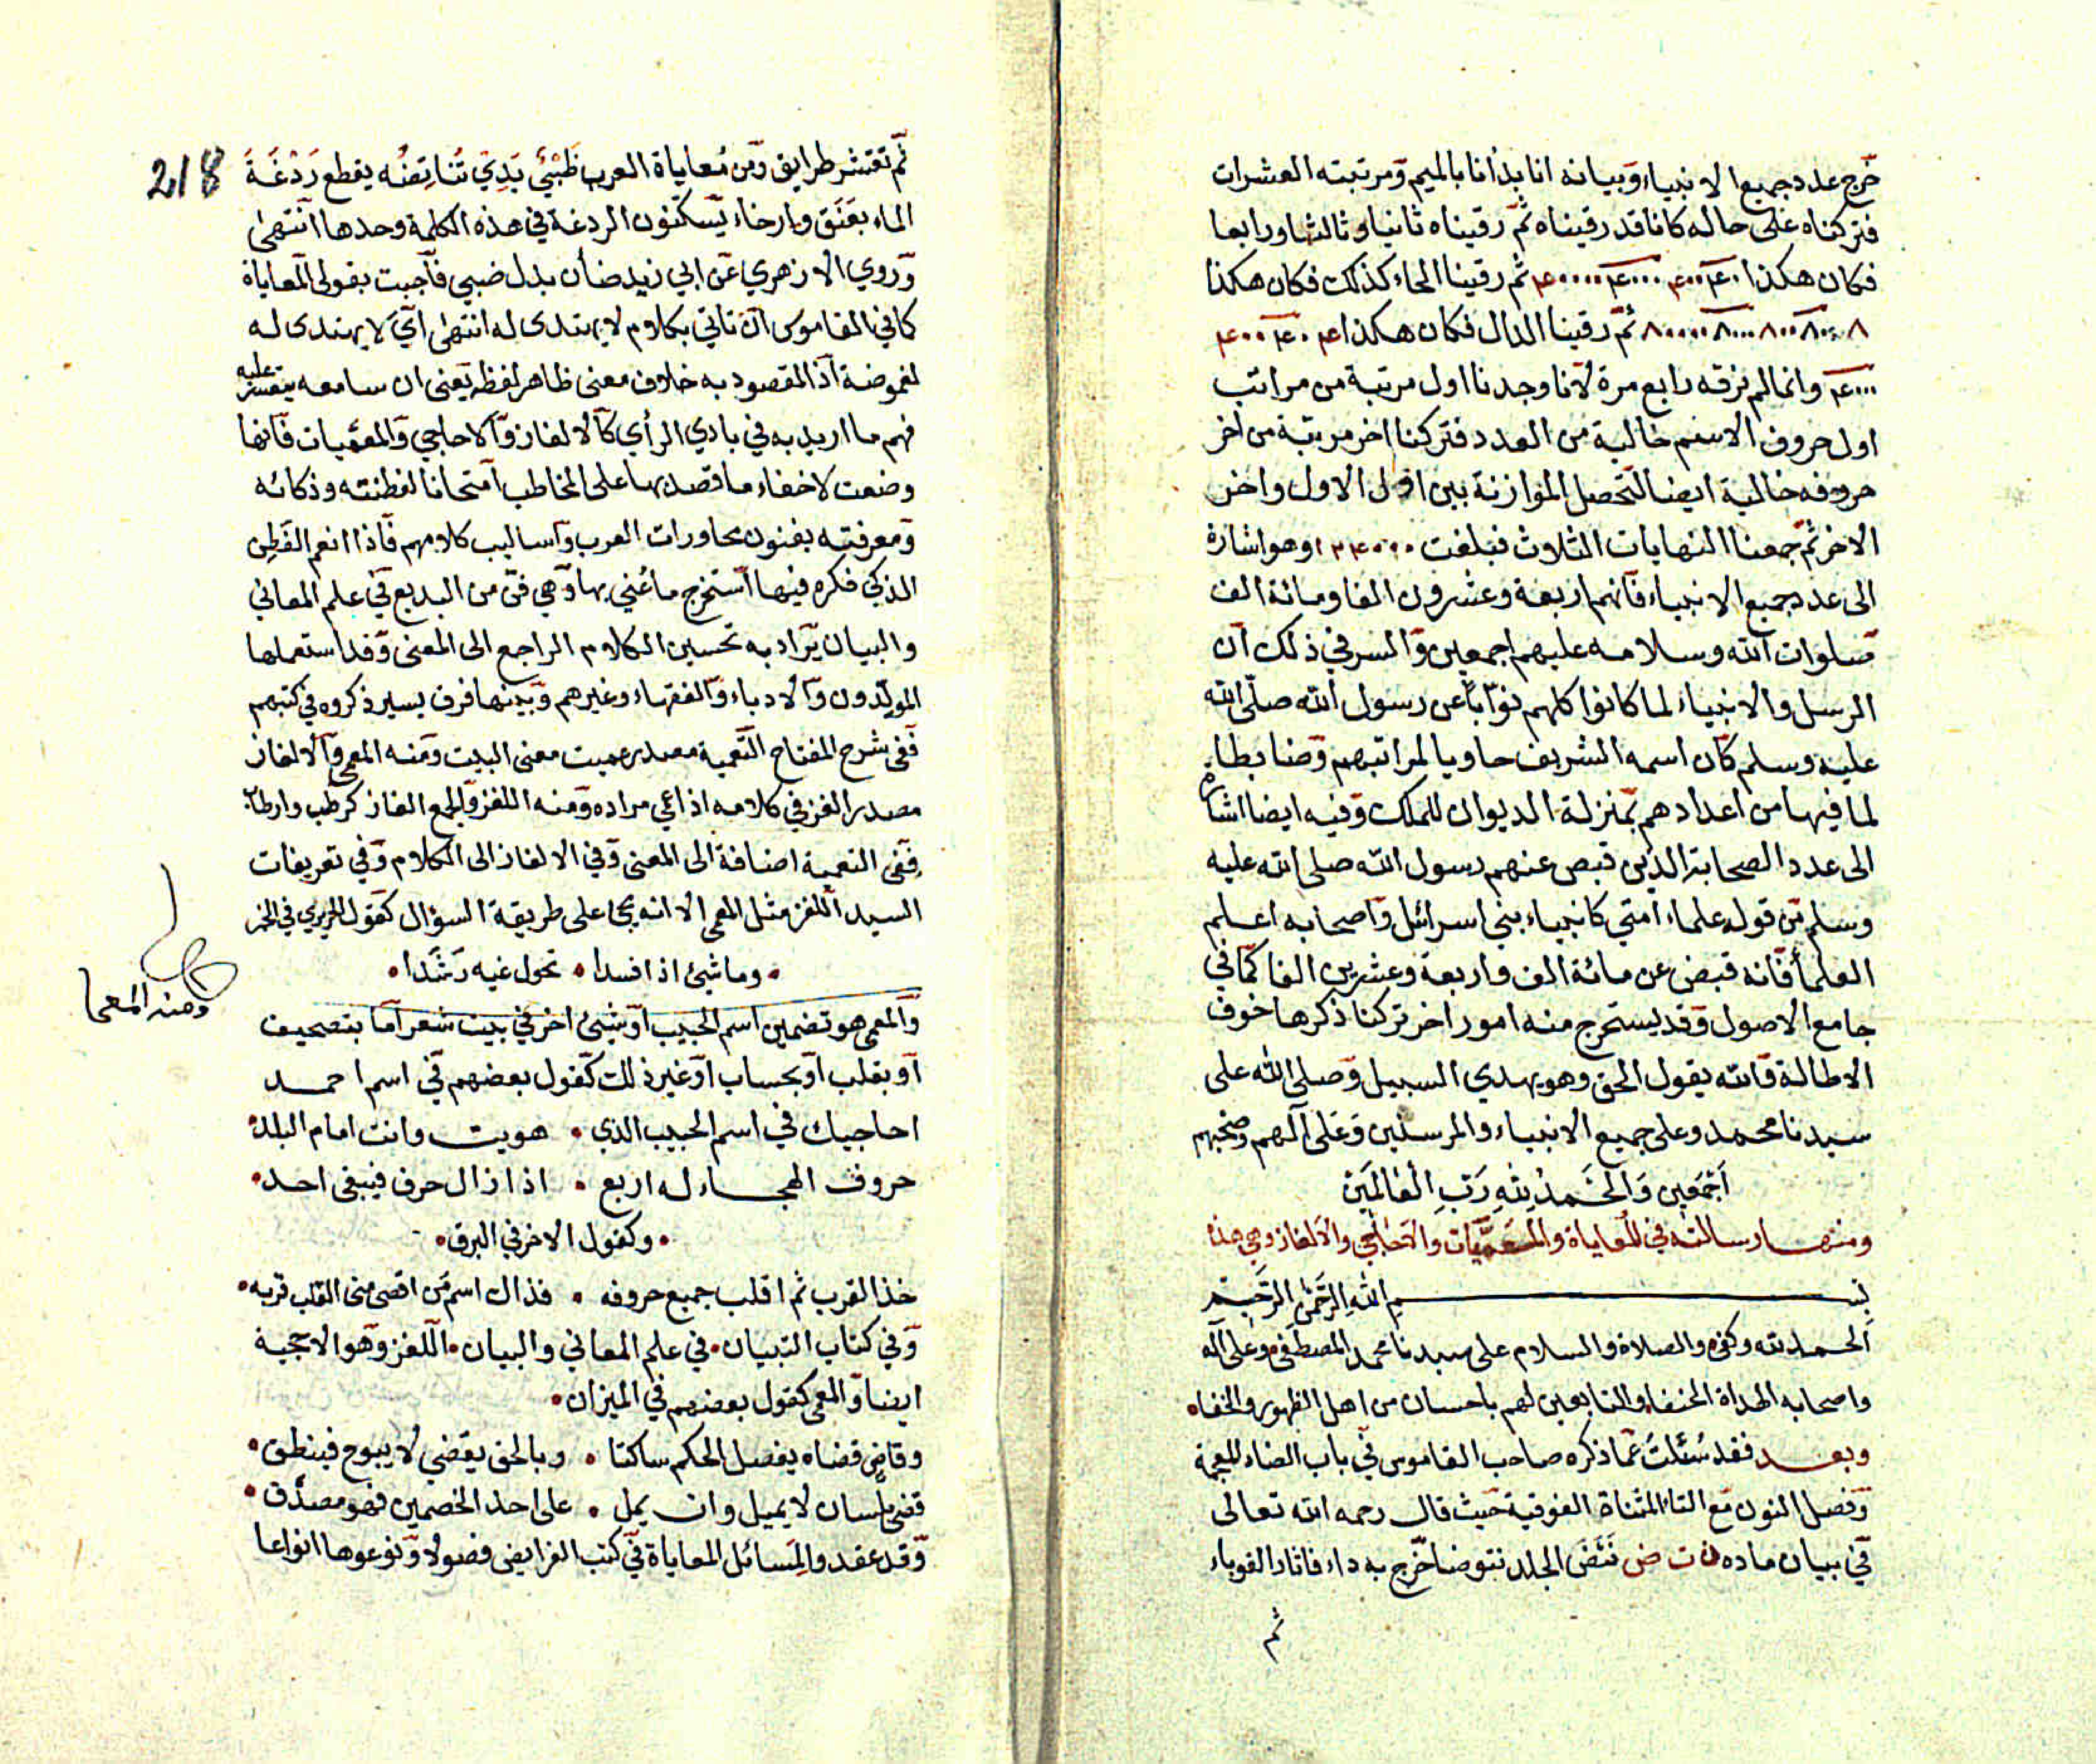 خرج عدد جميع الانبياء وبيانه انا بدأنا بالميم ومرتبته العشرات
فتركناه على حاله كانا قد رقيناه ثم رقيناه ثانيا وثالثا ورابعا
فكان هكذا ۴۰ ۴۰۰ ۴۰۰۰ ۴۰۰۰۰ ثم رقينا الحاء كذلك فكان هكذا
۸ ۸۰ ۸۰۰ ۸۰۰۰ ۸۰۰۰۰ ثم رقينا الدال فكان هكذا ۴ ۴۰ ۴۰۰
۴۰۰۰ وانما لم نرقه رابع مرة لانا وجدنا اول مرتبة من مراتب
اول حروف الاسم خالية من العدد فتركنا اخر مرتبة من اخر
حروفه خالية ايضا لتحصل الموازنة بين اول الاول واخر
الاخر ثم جمعنا النهايات الثلاث فبلغت ۱۲۴۰۰۰ وهو اشارة
الى عدد جميع الانبياء فانهم اربعة وعشرون الفا ومائة الف
صلوات الله وسلامه عليهم اجمعين والسر في ذلك ان
الرسل والانبياء لما كانوا كلهم نوّابا عن رسول الله صلى الله
عليه وسلم كان اسمه الشريف حاويا لمراتبهم وضابطا
لما فيها من اعدادهم بمنزلة الديوان للملك وفيه ايضا اشارة
الى عدد الصحابة الذين قبض عنهم رسول الله صلى الله عليه
وسلم من قوله علماء امتي كانبياء بني اسرائل واصحابه اعلم
العلماء فانه قبض عن مائة الف واربعة وعشرين الفا كما في
جامع الاصول وقد يستخرج منه امور اخر تركنا ذكرها خوف
الاطالة والله يقول الحق وهو يهدي السبيل وصلى الله على
سيدنا محمد وعلى جميع الانبياء والمرسلين وعلى آلهم وصحبهم
اجمعين والحمد لله رب العالمين
ومنها رسالته في المعاياة والمعميات والاحاجي والالغاز وهي هذه
بسم الله الرحمن الرحيم
الحمد لله وكفى والصلاة والسلام على سيدنا محمد المصطفى وعلى آله
واصحابه الهداة الحنفاء والتابعين لهم باحسان من اهل الظهور والخفاء
وبعد فقد سُئلتُ عما ذكره صاحب القاموس في باب الضاد المعجمة
وفصل النون مع التاء المثناة الفوقية حيث قال رحمه الله تعالى
في بيان ماده ن ت ض نَتَضَ الجلد نتوضا خرج به داء فاثار القوباء
ثم
218
ثم تقشر طرايق ومن مُعاياة العرب ظَبْيٌ بَذِي تُناتِضُه يقطع رَدْغَةَ
الماء بعَنَق وارخاء يسكنون الردغة في هذه الكلمة وحدها انتهى
وروي الازهري عن ابي زيد ضأن بدل ضبي فاجبت بقولي المعاياة
كما في القاموس ان تاتي بكلام لا يهتدى له انتهى اي لا يهتدى له
لغموضة اذ المقصود به خلاف معنى ظاهر لفظه يعنى ان سامعه يتعسر عليه
فهم ما اريد به في بادي الرأي كالالغاز والاحاجي والمعميات فانها
وضعت لاخفاء ما قصد بها على المخاطب امتحانا لفطنته وذكائه
ومعرفته بفنون محاورات العرب واساليب كلامهم فاذا انعم الفَطِن
الذكي فكره فيها استخرج ما عُني بها وهي فن من البديع في علم المعاني
والبيان يراد به تحسين الكلام الراجع الى المعنى وقد استعملها
المولدون والادباء والفقهاء وغيرهم وبينها فرق يسير ذكروه في كتبهم
ففى شرح المفتاح التعمية مصدر عميت معنى البيت ومنه المعمى والالغاز
مصدر الغز في كلامه اذا عمي مراده ومنه اللغز والجمع الغاز كرطب وارطاب
ففى التعمية اضافة الى المعنى وفي الالغاز الى الكلام وفي تعريفات
السيد اللغز مثل المعمى الا انه يجئ على طريقة السؤال كقول الحريري في الخمر
وما شيئ اذا فسدا • تحول غيه رَشَدا
والمعمى هو تضمين اسم الحبيب او شيئ اخر في بيت شعر اما بتصحيف
او بقلب او بحساب او غير ذلك كقول بعضهم في اسم احمد
احاجيك في اسم الحبيب الذي • هويت وانت امام البلد
حروف الهجاء له اربع • اذا زال حرف فيبقى احد
وكقول الاخر في البرق
خذ القرب ثم اقلب جميع حروفه • فذاك اسم من اقصى منى القلب قربه
وفي كتاب التبيان • في علم المعاني والبيان • اللغز وهو الاحجية
ايضا والمعمى كقول بعضهم في الميزان
وقاضى قضاه يفصل الحكم ساكتا • وبالحق يقضي لا يبوح فينطق
قضى بلسان لا يميل وان يمل • على احد الخصمين فهو مصدّق
وقد عقدوا لمسائل المعاياة في كتب الفرايض فصولا ونوعوها انواعا
ومنه المعما